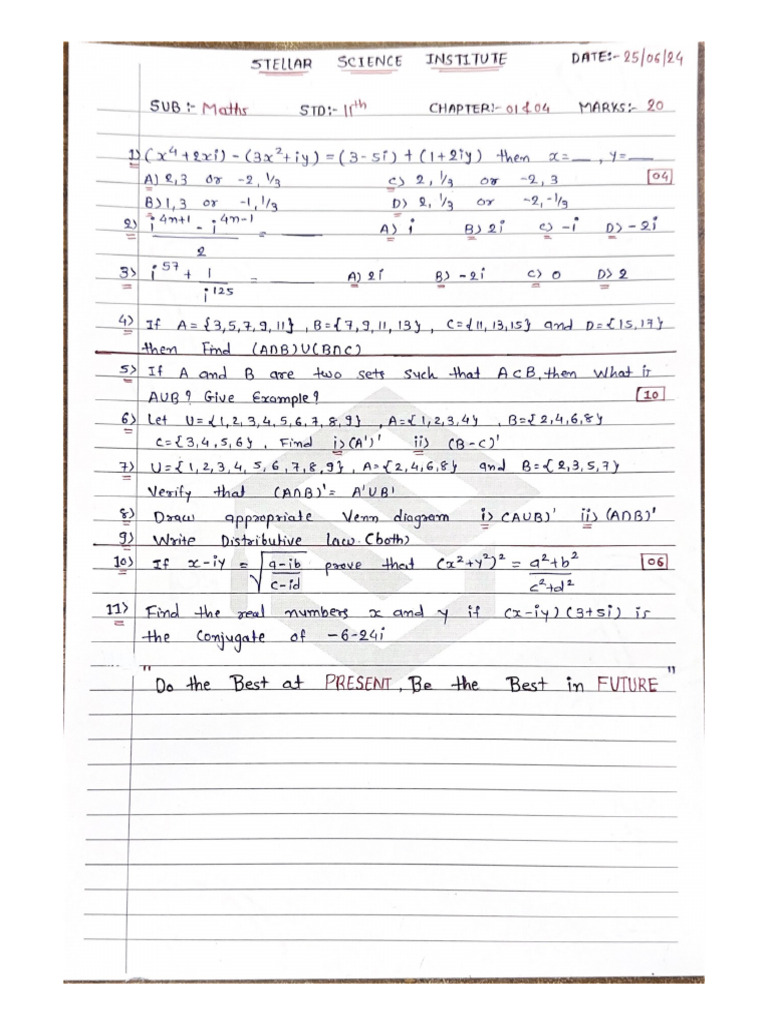 STELLAR SCIENCE INSTITUTE DATE:-25/06/24
SUB:- Maths STD:- 11th CHAPTER:- 01 & 04 MARKS:- 20
1) (x⁴+2xi) - (3x²+iy) = (3-5i) + (1+2iy) then x=__ , y=___
A) 2,3 or -2, 1/3 C) 2, 1/3 or -2, 3 04
B) 1,3 or -1, 1/3 D) 2, 1/3 or -2,-1/3
2) (i^(4n+1) - i^(4n-1))/2 = ____ A) i B) 2i C) -i D) -2i
3) i^57 + 1/i^125 = ____ A) 2i B) -2i C) 0 D) 2
4) If A={3,5,7,9,11} , B={7,9,11,13} , C={11,13,15} and D={15,17}
then Find (A∩B)∪(B∩C)
5) If A and B are two sets such that A⊂B, then What is
A∪B? Give Example? 10
6) Let U={1,2,3,4,5,6,7,8,9} , A={1,2,3,4} , B={2,4,6,8}
C={3,4,5,6} , Find i) (A')' ii) (B-C)'
7) U={1,2,3,4,5,6,7,8,9} , A={2,4,6,8} and B={2,3,5,7}
Verify that (A∩B)'= A'∪B'
8) Draw appropriate Venn diagram i) (A∪B)' ii) (A∩B)'
9) Write Distributive law (both)
10) If x-iy = √((a-ib)/(c-id)) prove that (x²+y²)² = (a²+b²)/(c²+d²) 06
11) Find the real numbers x and y if (x-iy)(3+5i) is
the Conjugate of -6-24i
"Do the Best at PRESENT, Be the Best in FUTURE"